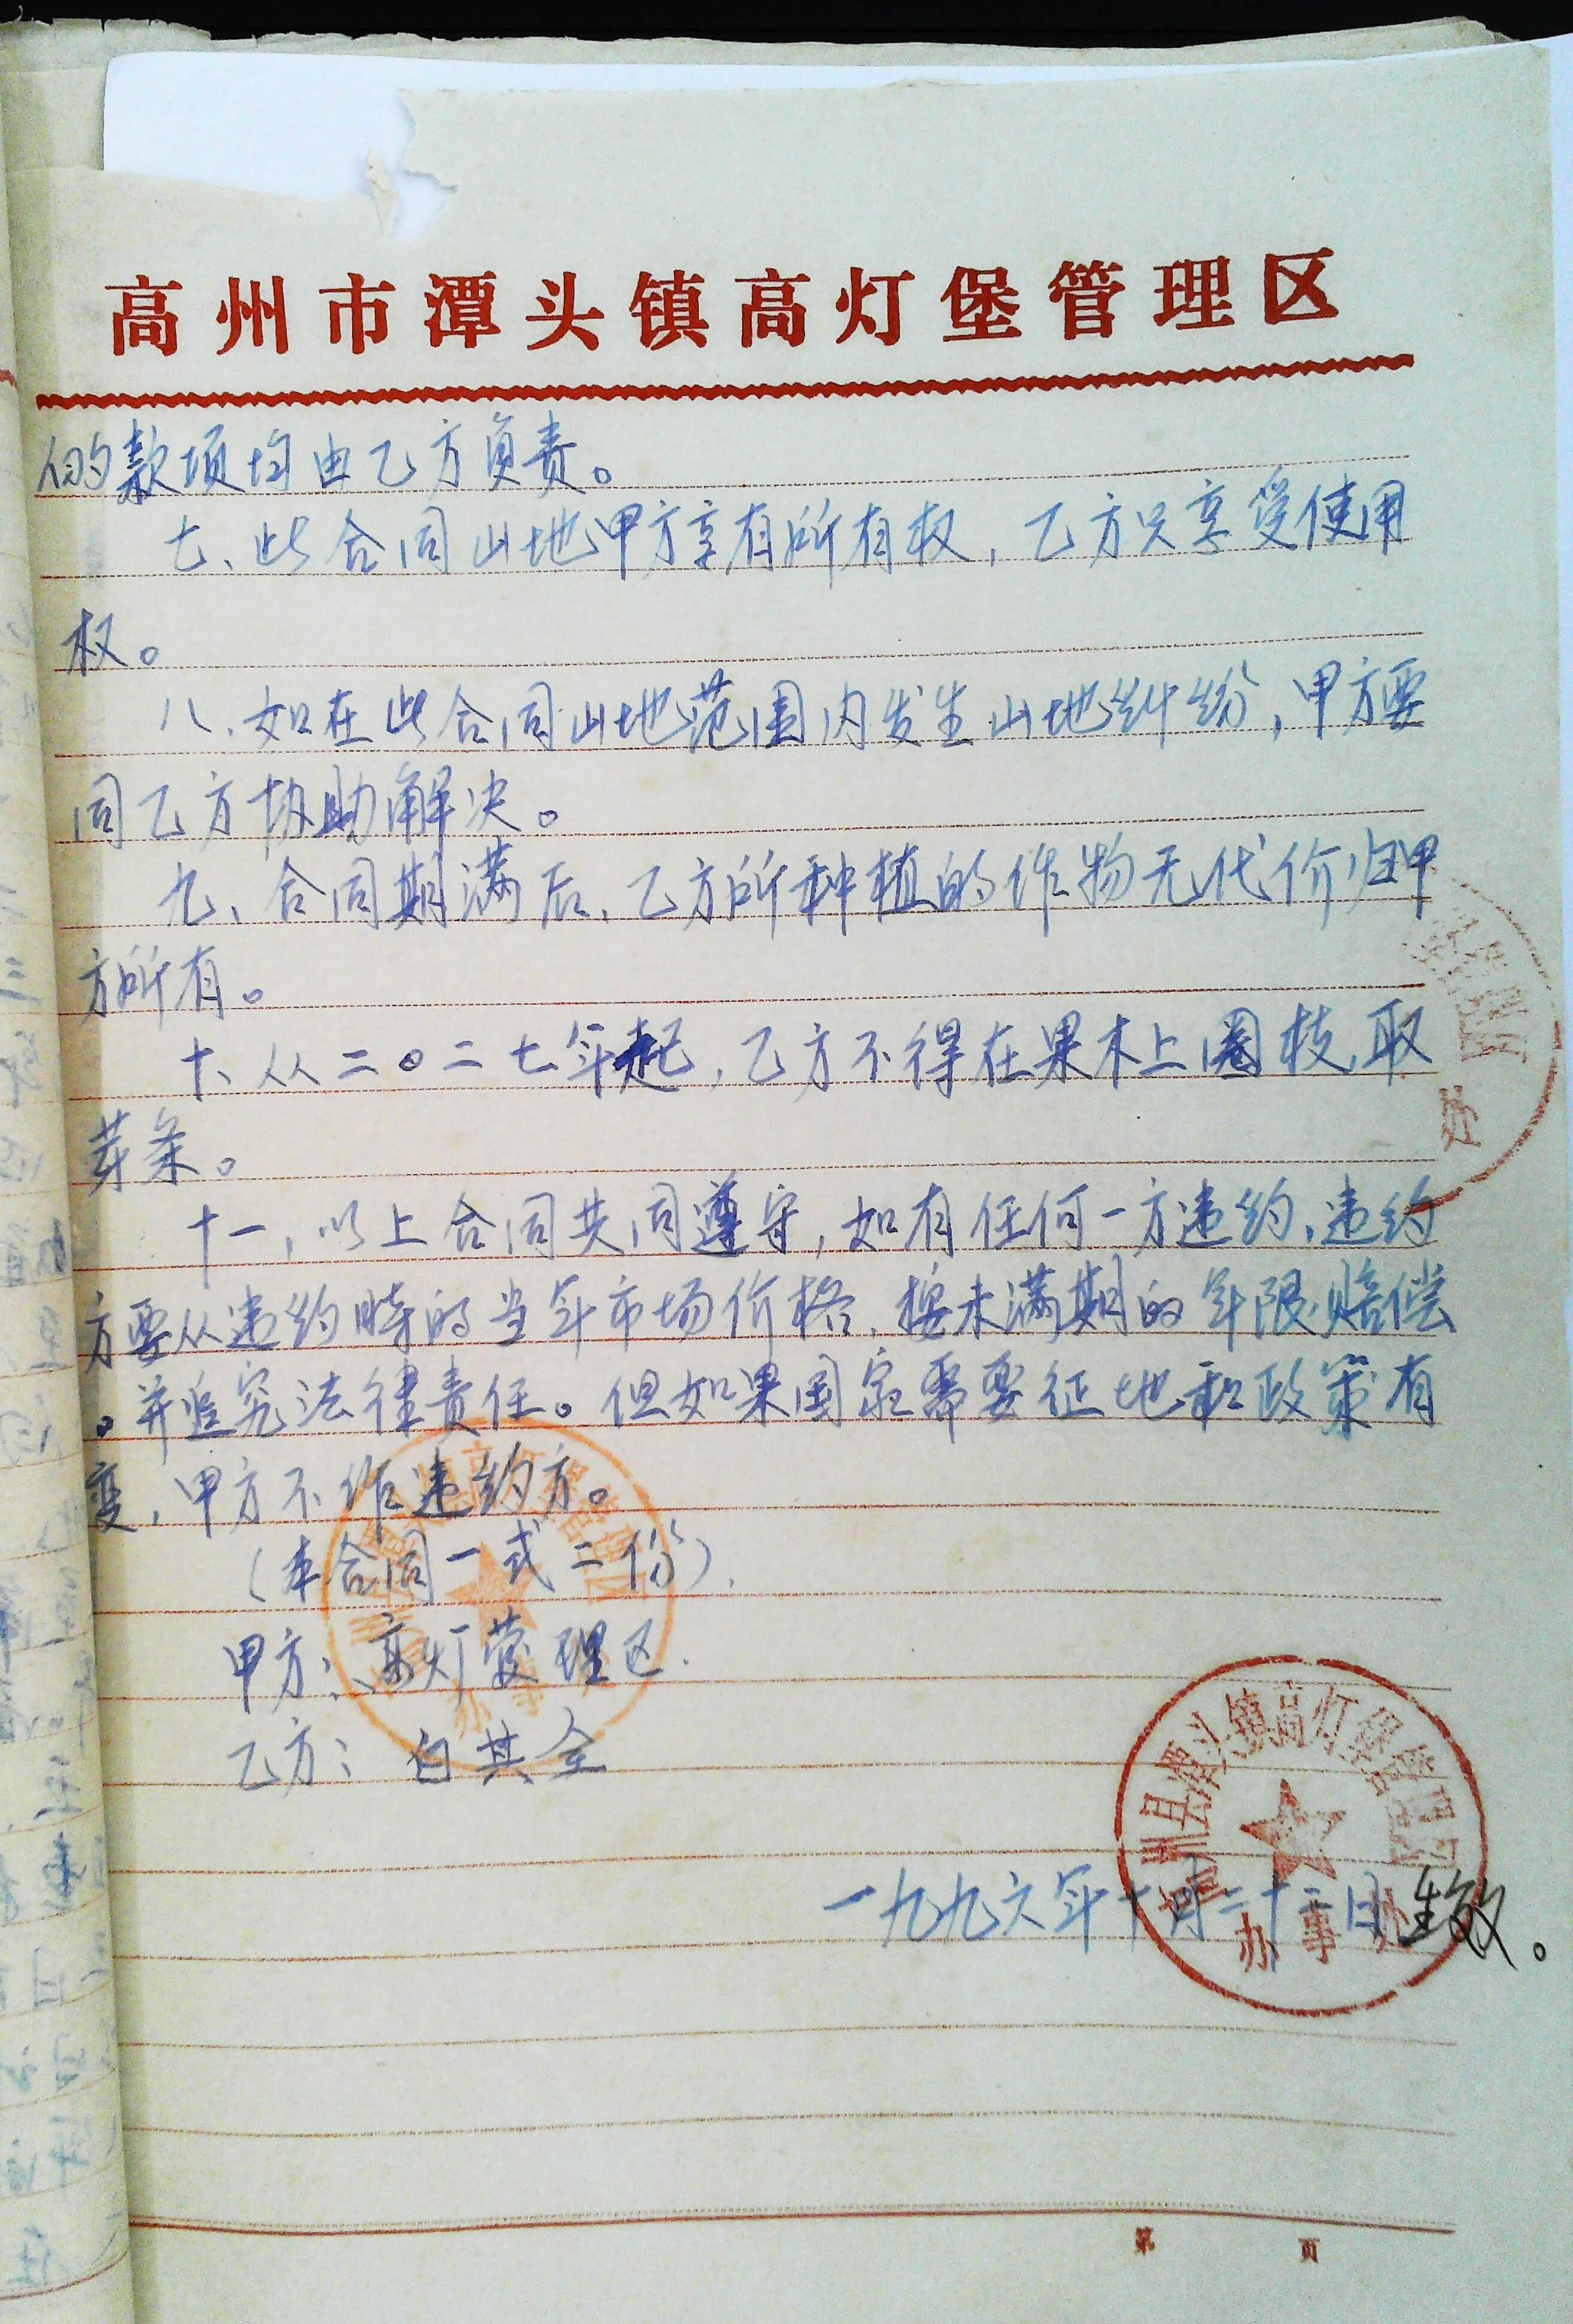 高州市潭头镇高灯堡管理区
的款项均由乙方负责。
七、此合同山地甲方享有所有权，乙方只享受使用
权。
八、如在此合同山地范围内发生山地纠纷，甲方要
同乙方协助解决。
九、合同期满后、乙方所种植的作物无代价归甲
方所有。
十、从二〇二七年起，乙方不得在果木上圈枝、取
芽条。
十一，以上合同共同遵守，如有任何一方违约、违约
方要从违约时的当年市场价格、按未满期的年限赔偿
。并追究法律责任。但如果国家需要征地和政策有
变，甲方不作违约方。
（本合同一式二份）.
甲方：高灯管理区.
乙方：白其全
州县潭头镇高灯堡管
一九九六年十月二十二日生效。
办事处
第 页